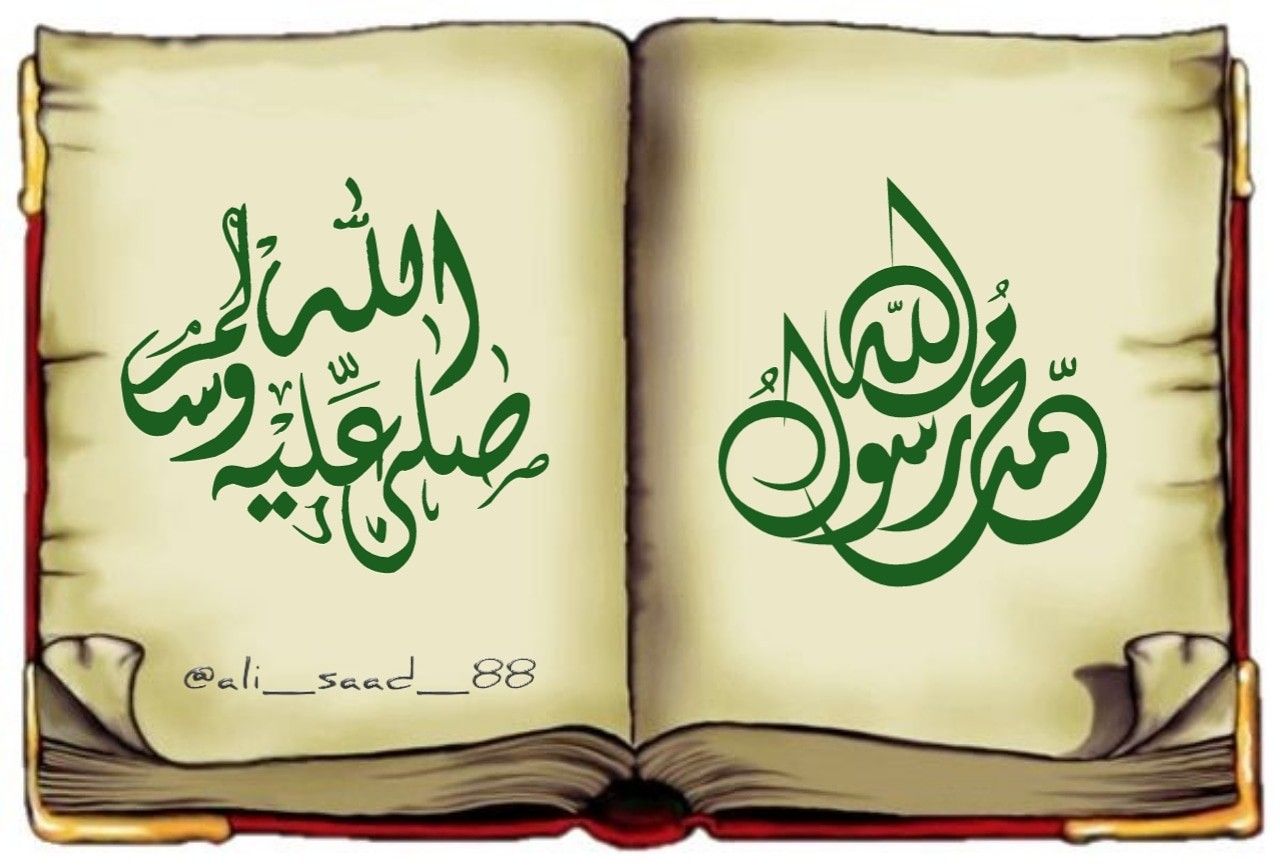 محمد رسول الله
صلى الله عليه وسلم
@ali_saad_88